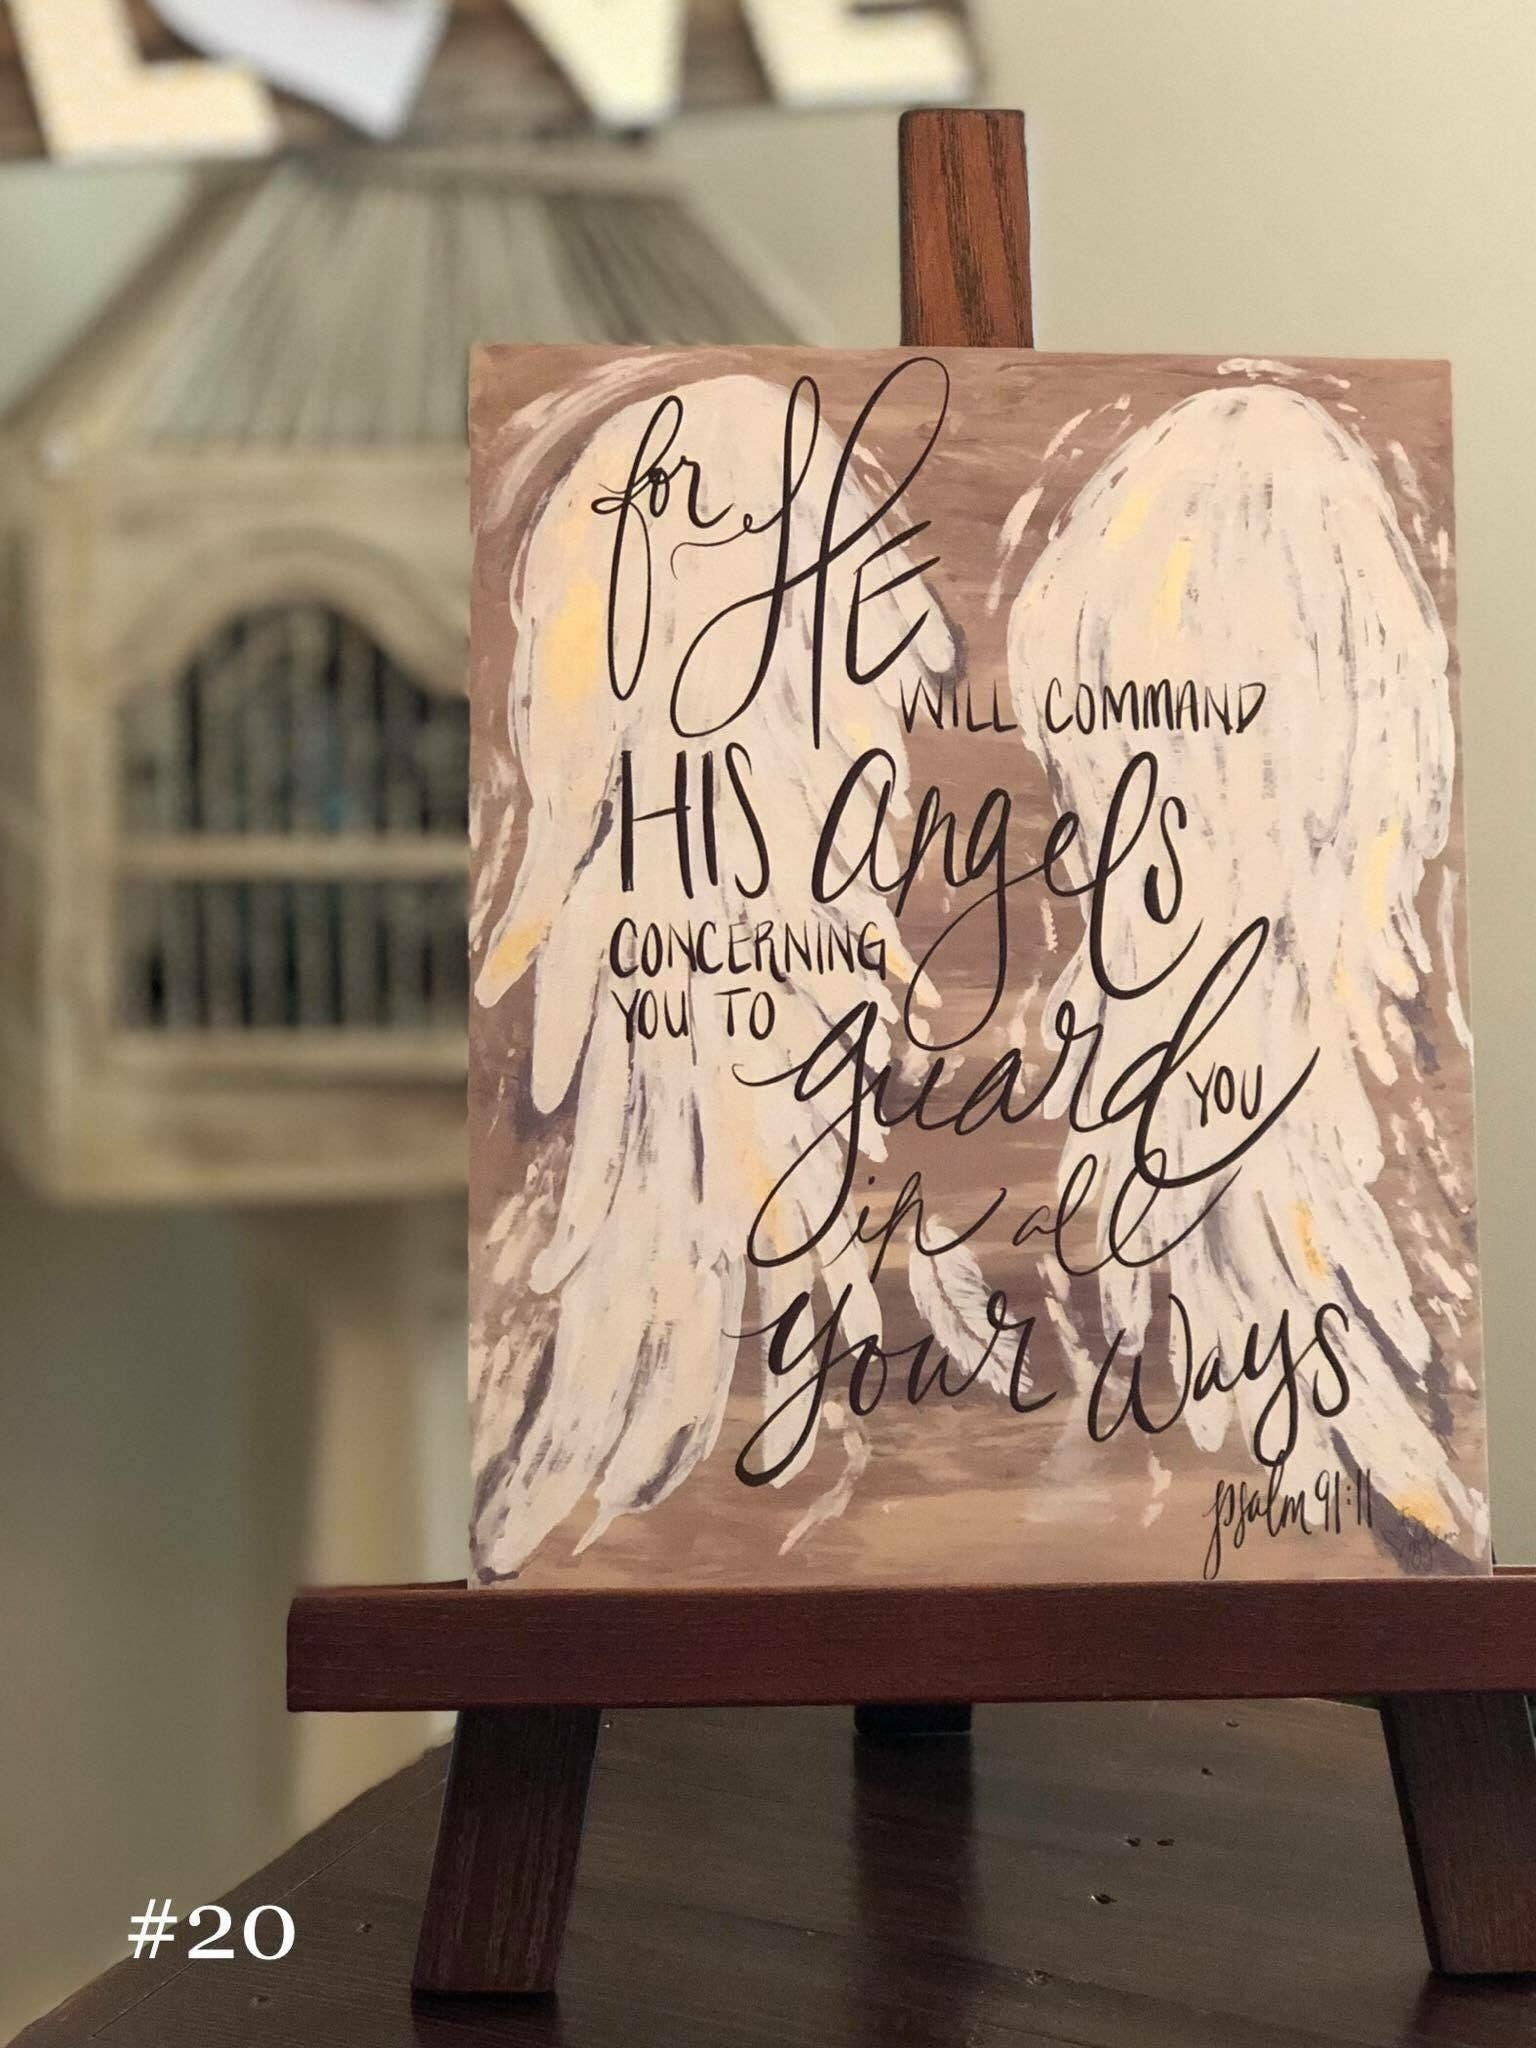 LOVE
for HE
WILL COMMAND
HIS angels
CONCERNING
YOU TO
guard YOU
in all
your ways
Psalm 91:11
#20